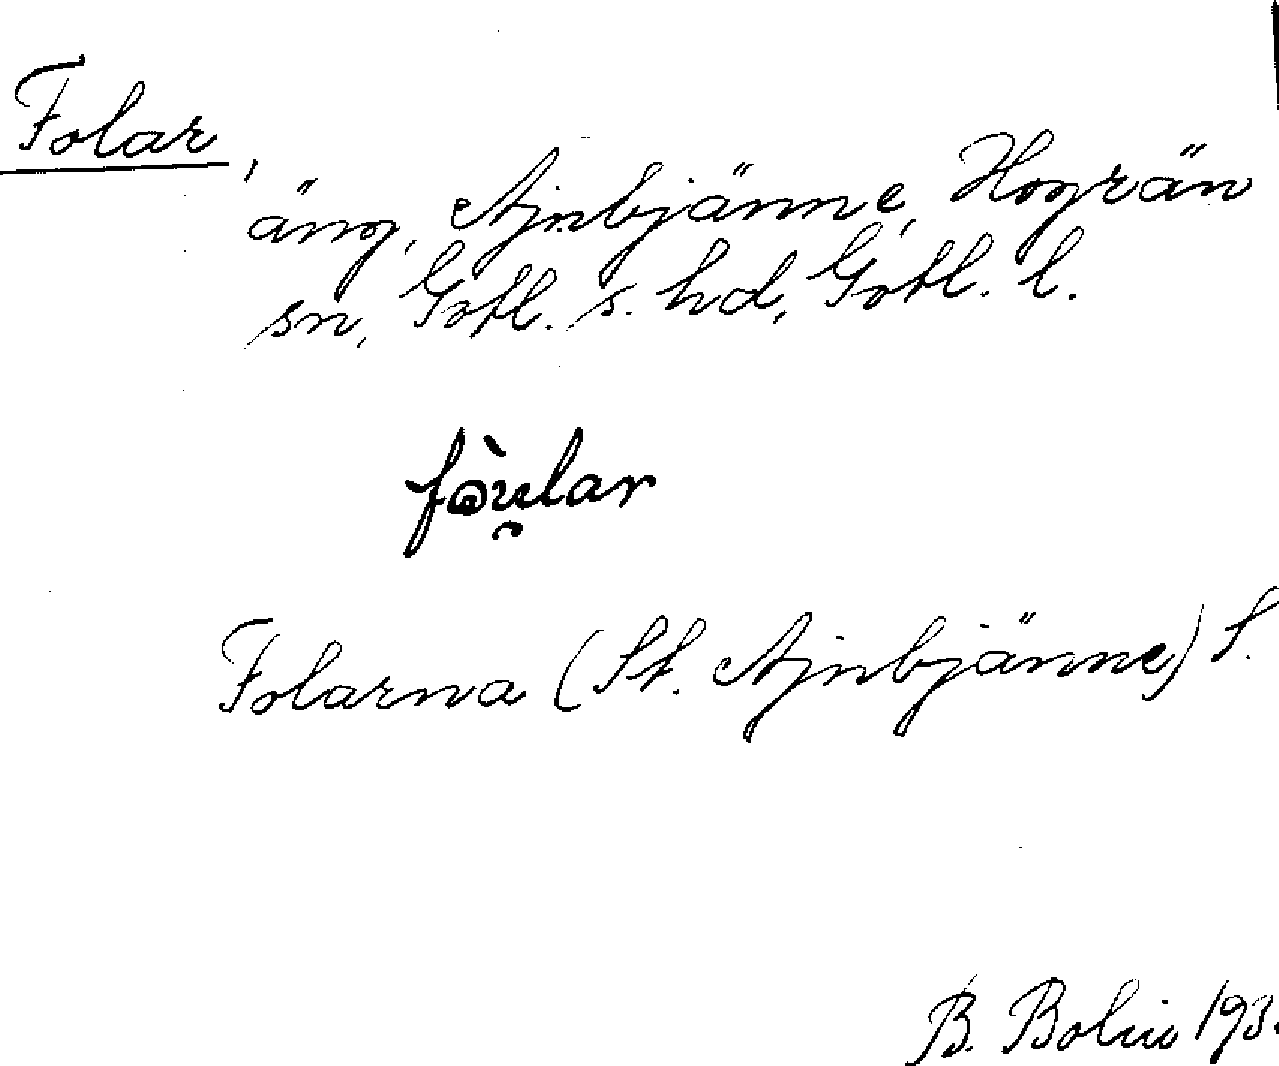 Folar,
äng, Ajnbjänne, Hogrän
sn, Gotl. s. hd, Gotl. l.
fòu̯lar
Folarna (St. Ajnbjänne) S.
B. Bolin 193.